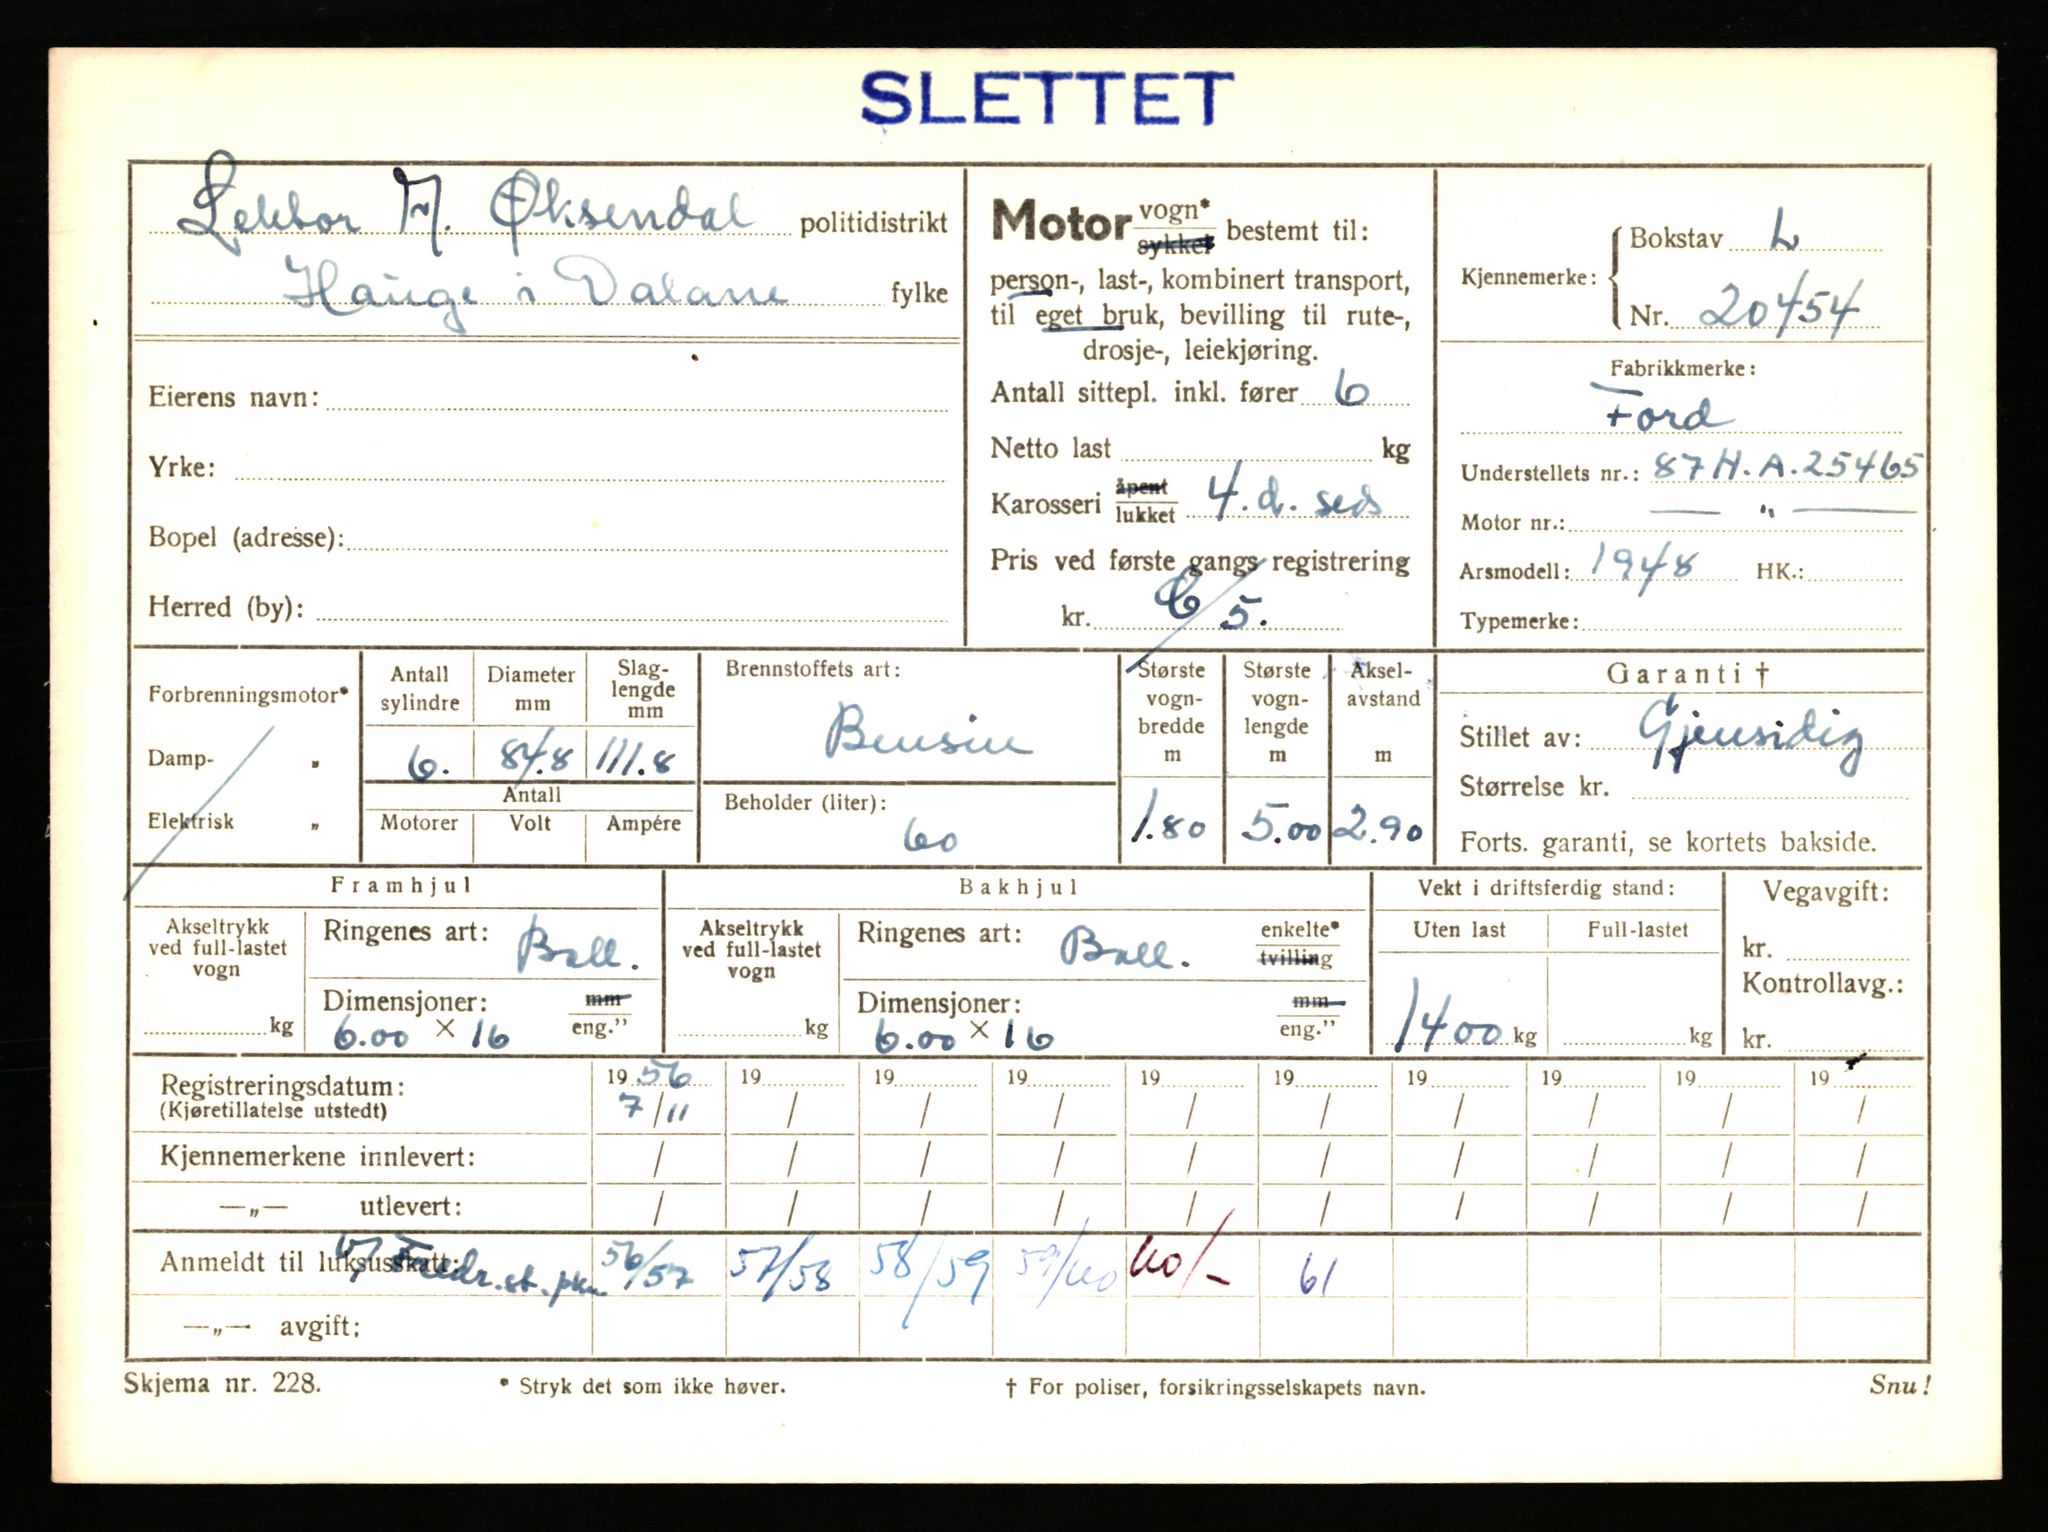 SLETTET
Lektor M. Øksendal politidistrikt
Hauge i Dalane fylke
Eierens navn:
Yrke:
Bopel (adresse):
Herred (by):
Motor vogn* sykkel bestemt til:
person-, last-, kombinert transport,
til eget bruk, bevilling til rute-,
drosje-, leiekjøring.
Antall sittepl. inkl. fører 6
Netto last kg
Karosseri åpent lukket 4. d. seds
Pris ved første gangs registrering
kr. 5.
Kjennemerke: Bokstav L
Nr. 20454
Fabrikkmerke:
Ford
Understellets nr.: 87 H.A.25465
Motor nr.: — " —
Arsmodell: 1948 HK.:
Typemerke:
Forbrenningsmotor*
Damp- „
Elektrisk „
Antall sylindre
Diameter mm
Slag-lengde mm
6. 84.8 111.8
Antall
Motorer Volt Ampére
Brennstoffets art:
Bensin
Beholder (liter):
60
Største vogn-bredde m
1.80
Største vogn-lengde m
5.00
Aksel-avstand m
2.90
Garanti †
Stillet av: Gjensidig
Størrelse kr.
Forts. garanti, se kortets bakside.
Framhjul
Akseltrykk ved full-lastet vogn
kg
Ringenes art: Ball.
Dimensjoner: mm
6.00 × 16 eng.”
Bakhjul
Akseltrykk ved full-lastet vogn
kg
Ringenes art: Ball. enkelte* tvilling
Dimensjoner: mm
6.00 × 16 eng.”
Vekt i driftsferdig stand:
Uten last Full-lastet
1400 kg kg
Vegavgift:
kr.
Kontrollavg.:
kr.
Registreringsdatum: 19 56 19 19 19 19 19 19 19 19 19
(Kjøretillatelse utstedt) 7/11 / / / / / / / / /
Kjennemerkene innlevert: / / / / / / / / / /
—„— utlevert: / / / / / / / / / /
Anmeldt til luksusskatt: 56/57 57/58 58/59 59/60 60/- 61
st.
—„— avgift:
Skjema nr. 228. * Stryk det som ikke høver. † For poliser, forsikringsselskapets navn. Snu!